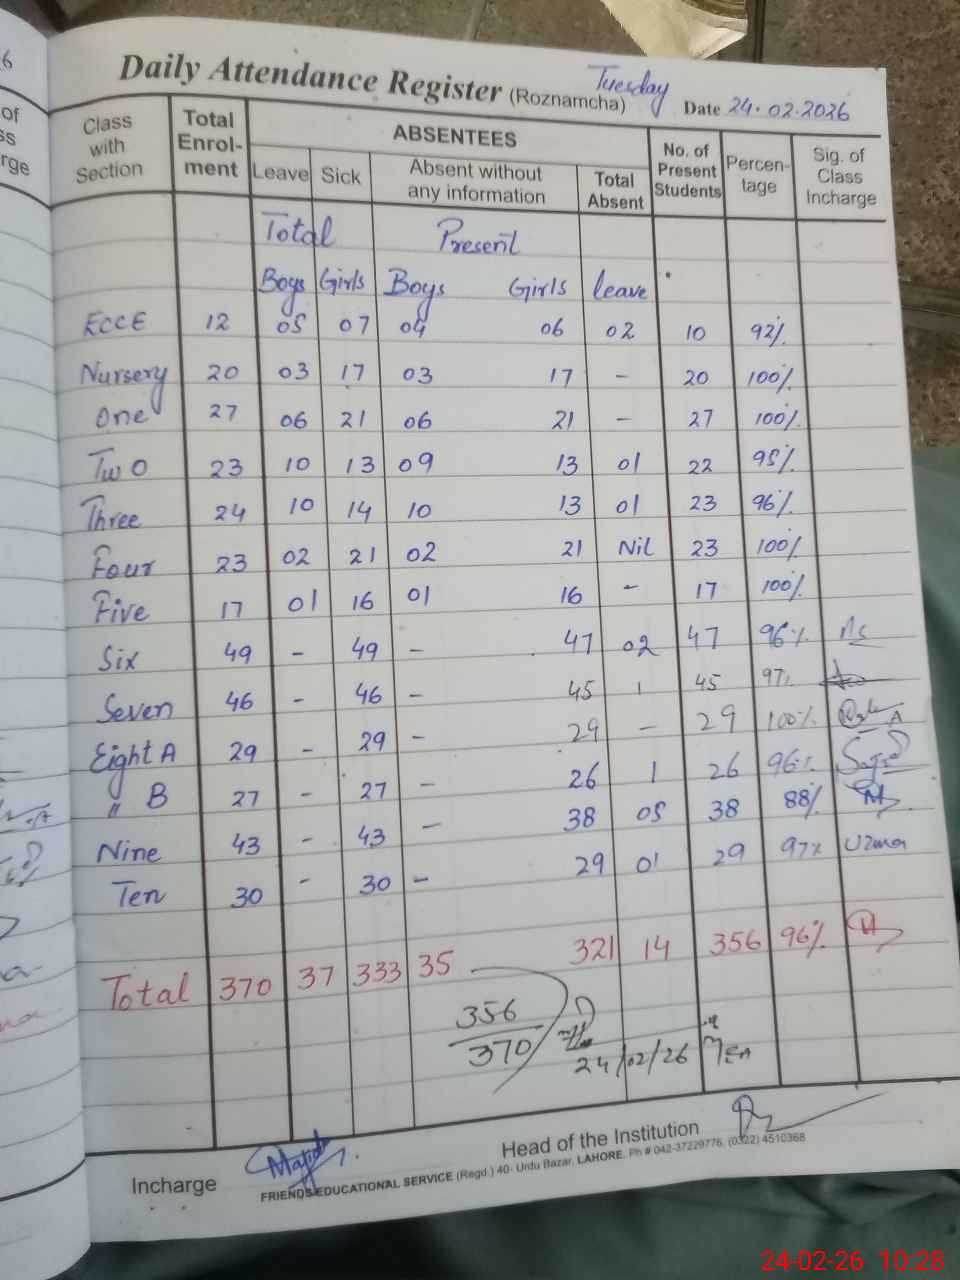 Daily Attendance Register (Roznamcha) Tuesday Date 24.02.2026
Class with Section Total Enrol-ment ABSENTEES No. of Present Students Percen-tage Sig. of Class Incharge
Leave Sick Absent without any information Total Absent
Total Present
Boys Girls Boys Girls leave
ECCE 12 05 07 04 06 02 10 92%
Nursery 20 03 17 03 17 - 20 100%
One 27 06 21 06 21 - 27 100%
Two 23 10 13 09 13 01 22 95%
Three 24 10 14 10 13 01 23 96%
Four 23 02 21 02 21 Nil 23 100%
Five 17 01 16 01 16 - 17 100%
Six 49 - 49 - 47 02 47 96%
Seven 46 - 46 - 45 1 45 97%
Eight A 29 - 29 - 29 - 29 100%
" B 27 - 27 - 26 1 26 96%
Nine 43 - 43 - 38 05 38 88%
Ten 30 - 30 - 29 01 29 97% Uzma
Total 370 37 333 35 321 14 356 96%
356
370
24/02/26 MEA
Incharge Majid Head of the Institution
FRIENDS EDUCATIONAL SERVICE (Regd.) 40- Urdu Bazar, LAHORE. Ph # 042-37229776, (0322) 4510368
24-02-26 10:28